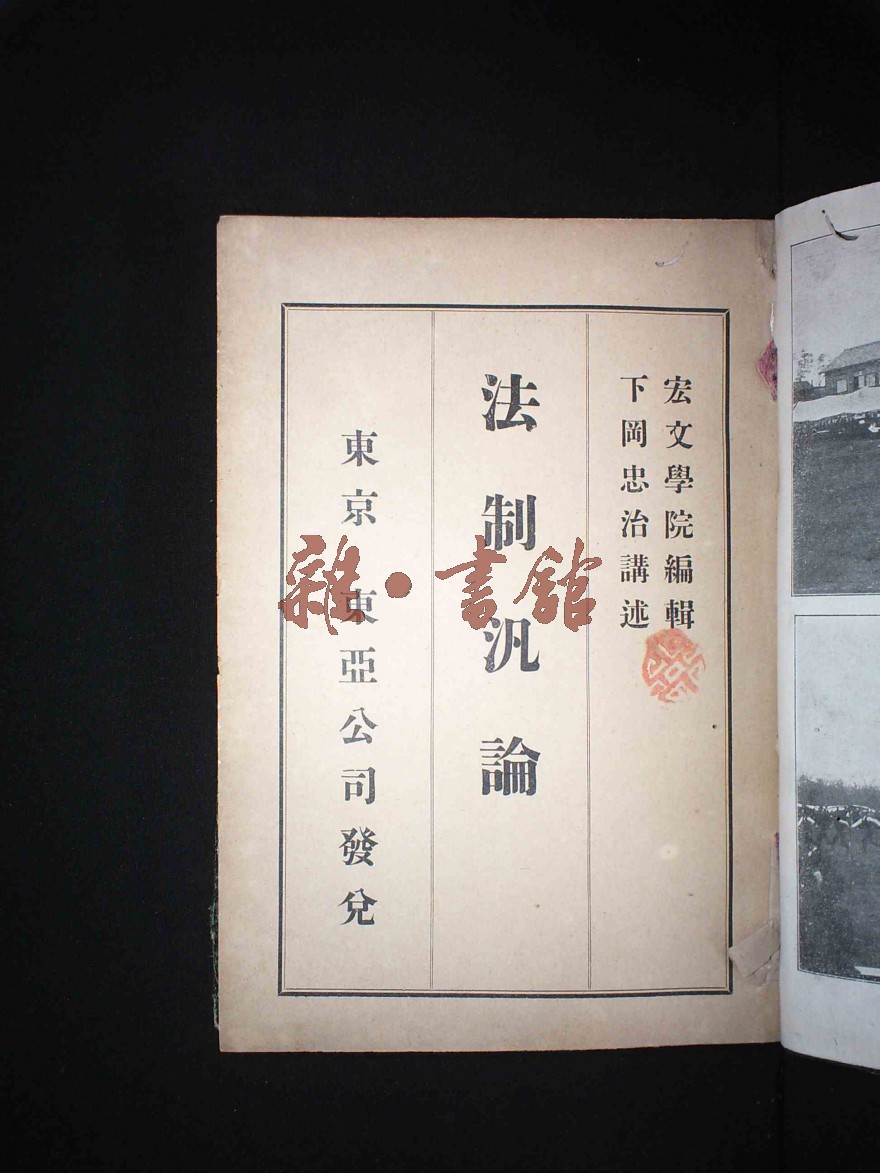 宏文學院編輯
下岡忠治講述
法制汎論
東京 東亞公司發兌
雜·書館